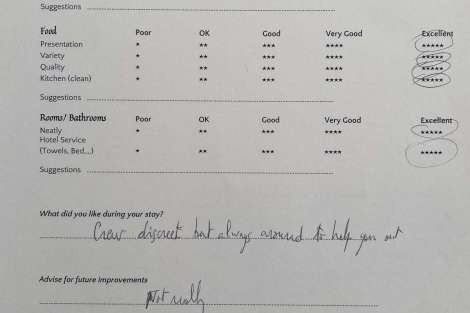 Suggestions
Food Poor OK Good Very Good Excellent
Presentation * ** *** **** *****
Variety * ** *** **** *****
Quality * ** *** **** *****
Kitchen (clean) * ** *** **** *****
Suggestions
Rooms/ Bathrooms Poor OK Good Very Good Excellent
Neatly * ** *** **** *****
Hotel Service
(Towels, Bed...) * ** *** **** *****
Suggestions
What did you like during your stay?
Crew discreet but always around to help you out
Advise for future improvements
Not really